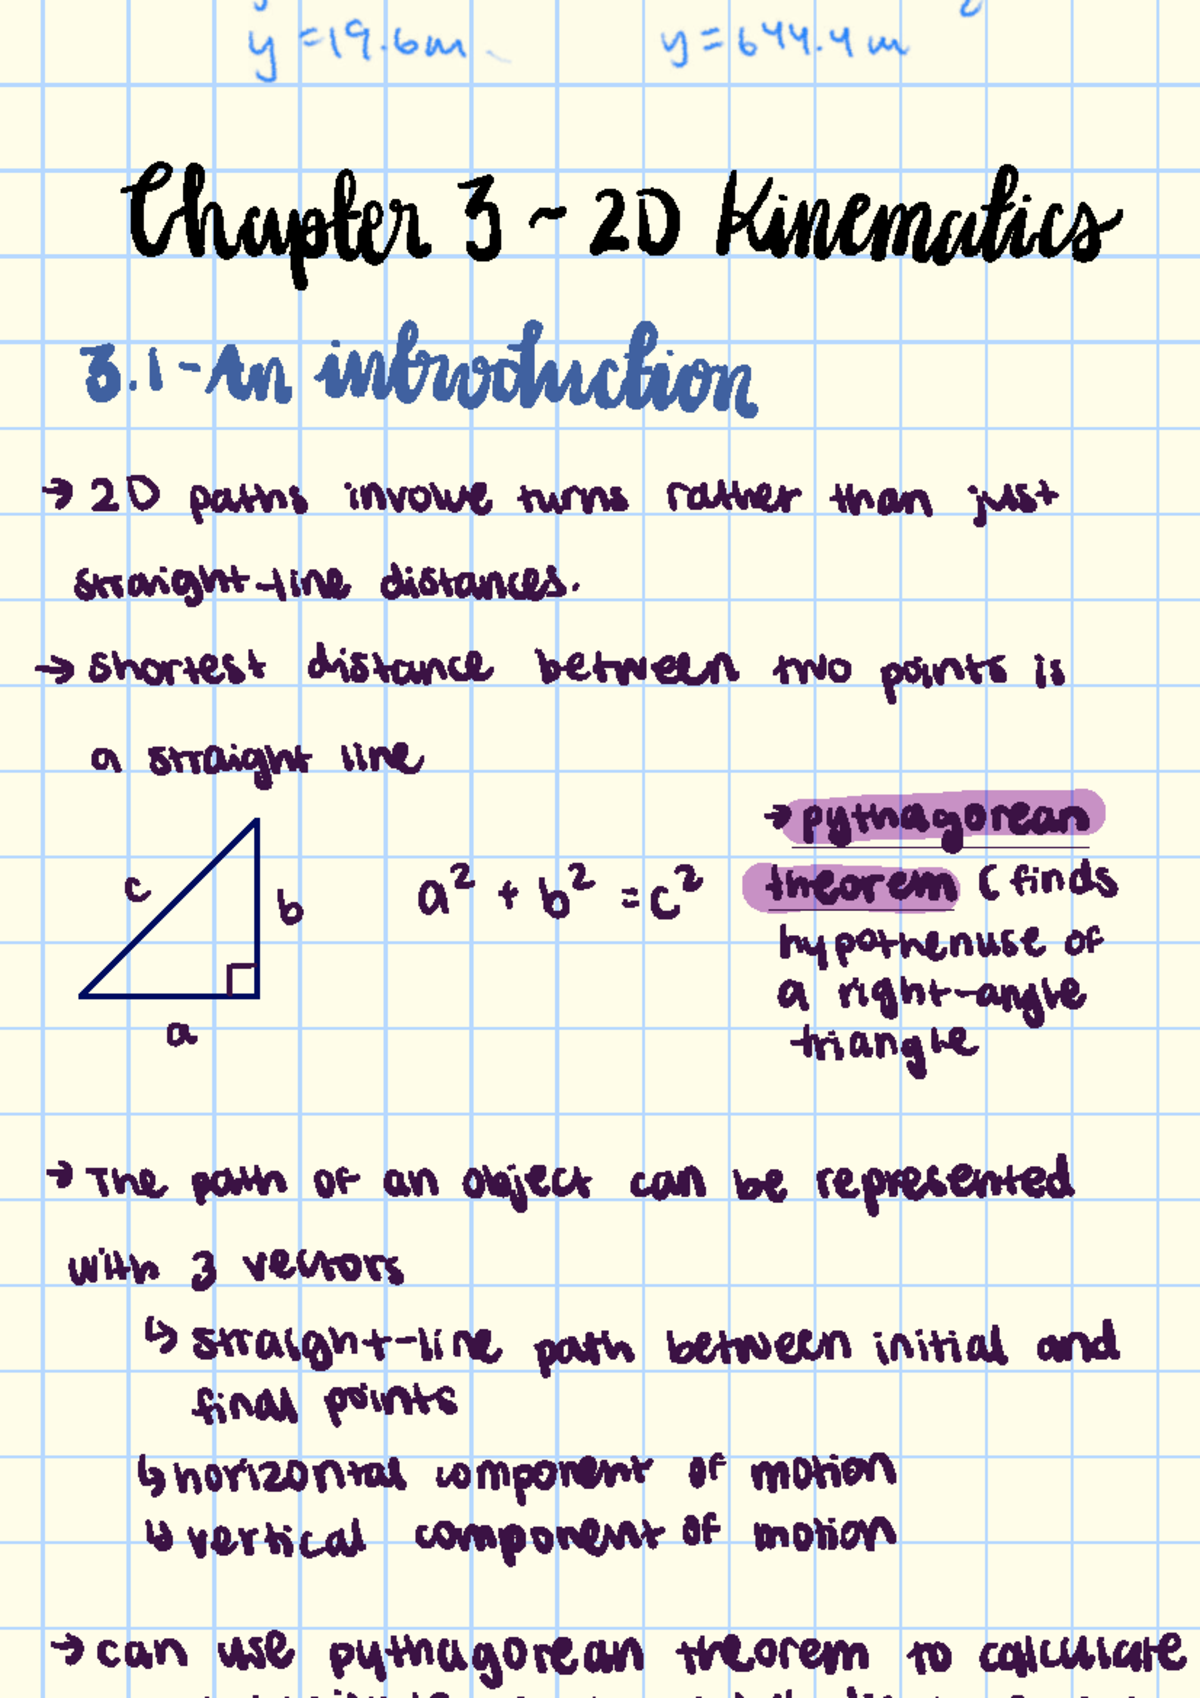 y = 19.6m
y = 644.4 m
Chapter 3 ~ 2D Kinematics
3.1 - An introduction
→ 2D paths involve turns rather than just
straight-line distances.
→ shortest distance between two points is
a straight line
c
b
a
a² + b² = c²
→ pythagorean
theorem (finds
hypothenuse of
a right-angle
triangle
→ The path of an object can be represented
with 3 vectors
↳ straight-line path between initial and
final points
↳ horizontal component of motion
↳ vertical component of motion
→ can use pythagorean theorem to calculate